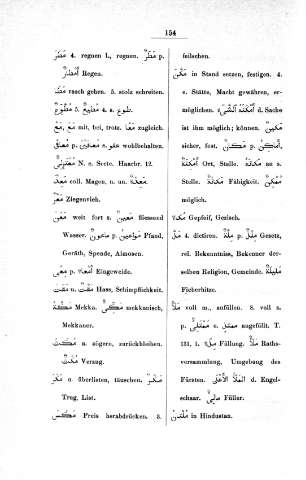 154
مَطَرَ 4. regnen l., regnen. مَطَرٌ p.
أَمْطَارٌ Regen.
مَطَا rasch gehen. 5. stolz schreiten.
مَعَ mit, bei, trotz. مَعًا zugleich.
N. e. Secte. Haarbr. 12.
مَعِدَةٌ coll. Magen, n. un.
مَعَزَ Ziegenvieh.
weit fort s. مَعِينٌ fliessend
Wasser. مَاعُونٌ p. مَوَاعِينُ Pfand,
Geräth, Spende, Almosen.
مِعًى p. أَمْعَاءٌ Eingeweide.
مَقَتَ u. مَقْتٌ Hass, Schimpflichkeit.
مَكَّةُ Mekka. مَكِّيٌّ mekkanisch,
Mekkaner.
مَكَثَ u. zögern, zurückbleiben.
مُكْثٌ Verzug.
مَكَرَ u. überlisten, täuschen. مَكْرٌ
Trug, List.
مَكَسَ Preis herabdrücken. 3.
feilschen.
مَكَّنَ in Stand setzen, festigen. 4.
e. Stätte, Macht gewähren, er-
möglichen. أَمْكَنَهُ الشَّيْءُ d. Sache
ist ihm möglich; können. مَكِينٌ
sicher, fest.
مَكَانٌ Ort, Stelle. مَكَانَةٌ us s.
Stelle. Fähigkeit.
Gepfeif, Gezisch.
4. dictiren. مِلَّةٌ p. مِلَلٌ Gesetz,
rel. Bekenntniss, Bekenner der-
selben Religion, Gemeinde. مَلِيلَةٌ
Fieberhitze.
مَلَأَ voll m., anfüllen. 8. voll s.
angefüllt. T.
131, 1. Füllung. مَلَأٌ Raths-
versammlung, Umgebung des
Fürsten. المَلَأُ الأَعْلَى d. Engel-
schaar. Füller.
in Hindustan.